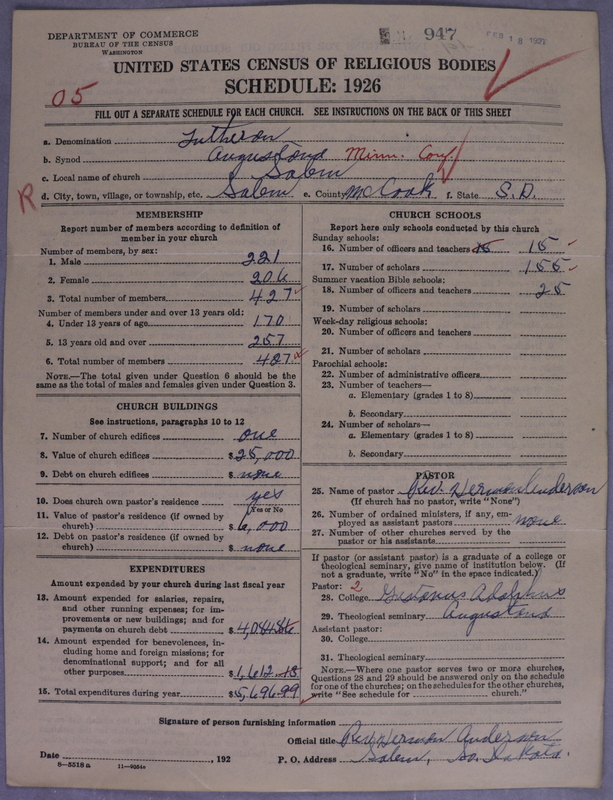 DEPARTMENT OF COMMERCE
BUREAU OF THE CENSUS
WASHINGTON
947
FEB 18 1927
UNITED STATES CENSUS OF RELIGIOUS BODIES
SCHEDULE: 1926
05
FILL OUT A SEPARATE SCHEDULE FOR EACH CHURCH. SEE INSTRUCTIONS ON THE BACK OF THIS SHEET
a. Denomination Lutheran
b. Synod Augustana Minn. Conf
c. Local name of church Salem
R
d. City, town, village, or township, etc. Salem e. County McCook f. State S.D.
MEMBERSHIP
Report number of members according to definition of
member in your church
Number of members, by sex:
1. Male 221
2. Female 206
3. Total number of members 427
Number of members under and over 13 years old:
4. Under 13 years of age 170
5. 13 years old and over 257
6. Total number of members 427
NOTE.—The total given under Question 6 should be the
same as the total of males and females given under Question 3.
CHURCH BUILDINGS
See instructions, paragraphs 10 to 12
7. Number of church edifices one
8. Value of church edifices $25,000
9. Debt on church edifices $none
10. Does church own pastor's residence yes
(Yes or No)
11. Value of pastor's residence (if owned by
church) $6,000
12. Debt on pastor's residence (if owned by
church) $none
EXPENDITURES
Amount expended by your church during last fiscal year
13. Amount expended for salaries, repairs,
and other running expenses; for im-
provements or new buildings; and for
payments on church debt $4,084.86
14. Amount expended for benevolences, in-
cluding home and foreign missions; for
denominational support; and for all
other purposes $1,612.13
15. Total expenditures during year $5,696.99
CHURCH SCHOOLS
Report here only schools conducted by this church
Sunday schools:
16. Number of officers and teachers 15
17. Number of scholars 155
Summer vacation Bible schools:
18. Number of officers and teachers 25
19. Number of scholars
Week-day religious schools:
20. Number of officers and teachers
21. Number of scholars
Parochial schools:
22. Number of administrative officers
23. Number of teachers—
a. Elementary (grades 1 to 8)
b. Secondary
24. Number of scholars—
a. Elementary (grades 1 to 8)
b. Secondary
PASTOR
25. Name of pastor Rev. Herman Anderson
(If church has no pastor, write "None")
26. Number of ordained ministers, if any, em-
ployed as assistant pastors none
27. Number of other churches served by the
pastor or his assistants
If pastor (or assistant pastor) is a graduate of a college or
theological seminary, give name of institution below. (If
not a graduate, write "No" in the space indicated.)
Pastor: 2
28. College Gustavus Adolphus
29. Theological seminary Augustana
Assistant pastor:
30. College
31. Theological seminary
NOTE.—Where one pastor serves two or more churches,
Questions 28 and 29 should be answered only on the schedule
for one of the churches; on the schedules for the other churches,
write "See schedule for church."
Signature of person furnishing information
Official title Rev. Herman Anderson
Date , 192 P. O. Address Salem, So. Dakota.
8—5518a 11—9554a